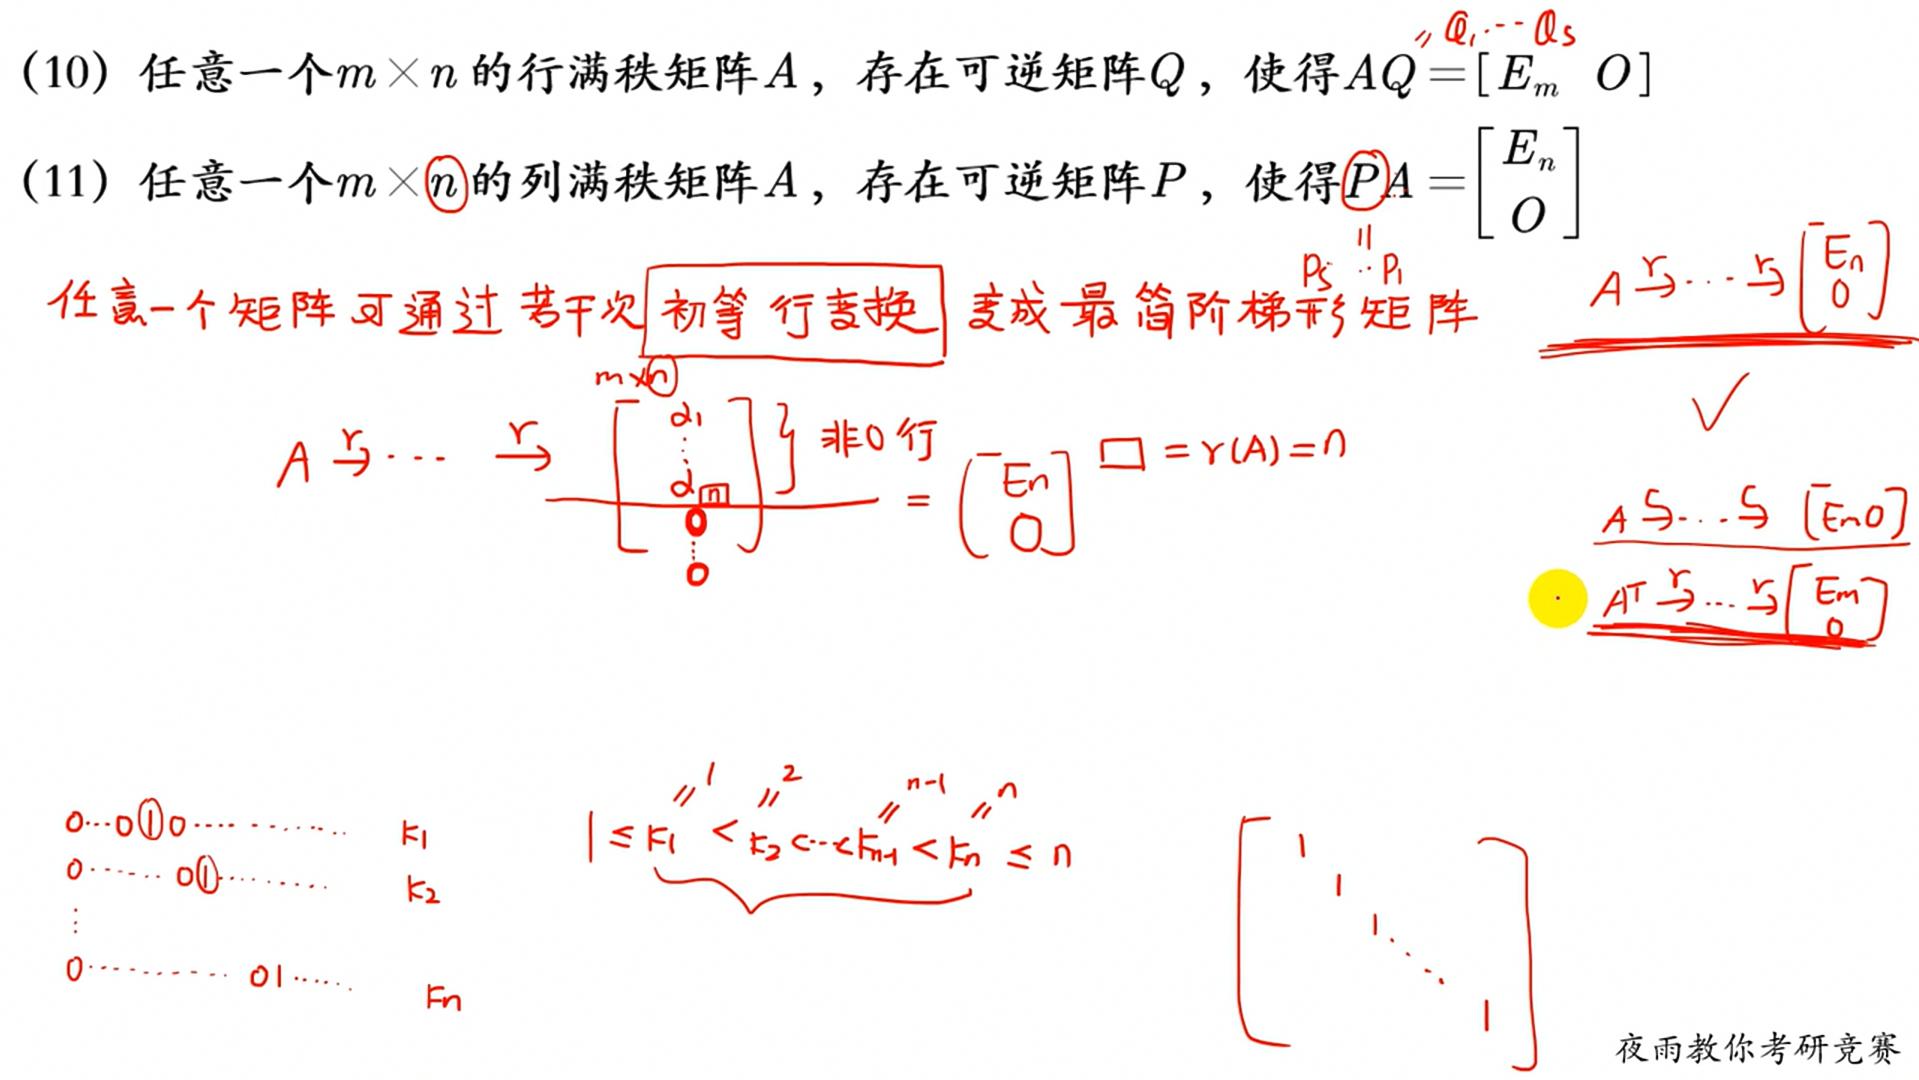 = Q₁ ··· Qs
(10) 任意一个m×n的行满秩矩阵A，存在可逆矩阵Q，使得AQ=[Eₘ O]
(11) 任意一个m×n的列满秩矩阵A，存在可逆矩阵P，使得PA=[Eₙ
O]
=
Ps ··· P₁
任意一个矩阵可通过若干次 初等行变换 变成最简阶梯形矩阵
A →r ··· →r [Eₙ
0]
✓
m×n
A →r ··· →r [α₁
⋮
αₙ
0
⋮
0] } 非0行
= [Eₙ
O]
□ = r(A) = n
A →c ··· →c [Eₘ 0]
Aᵀ →r ··· →r [Eₘ
0]
0···0 1 0········· k₁
0······ 0 1········· k₂
⋮
0········· 0 1····· kₙ
= 1 = 2 = n-1 = n
1 ≤ k₁ < k₂ <···< kₙ₋₁ < kₙ ≤ n
[1
1
1
⋱
1]
夜雨教你考研竞赛